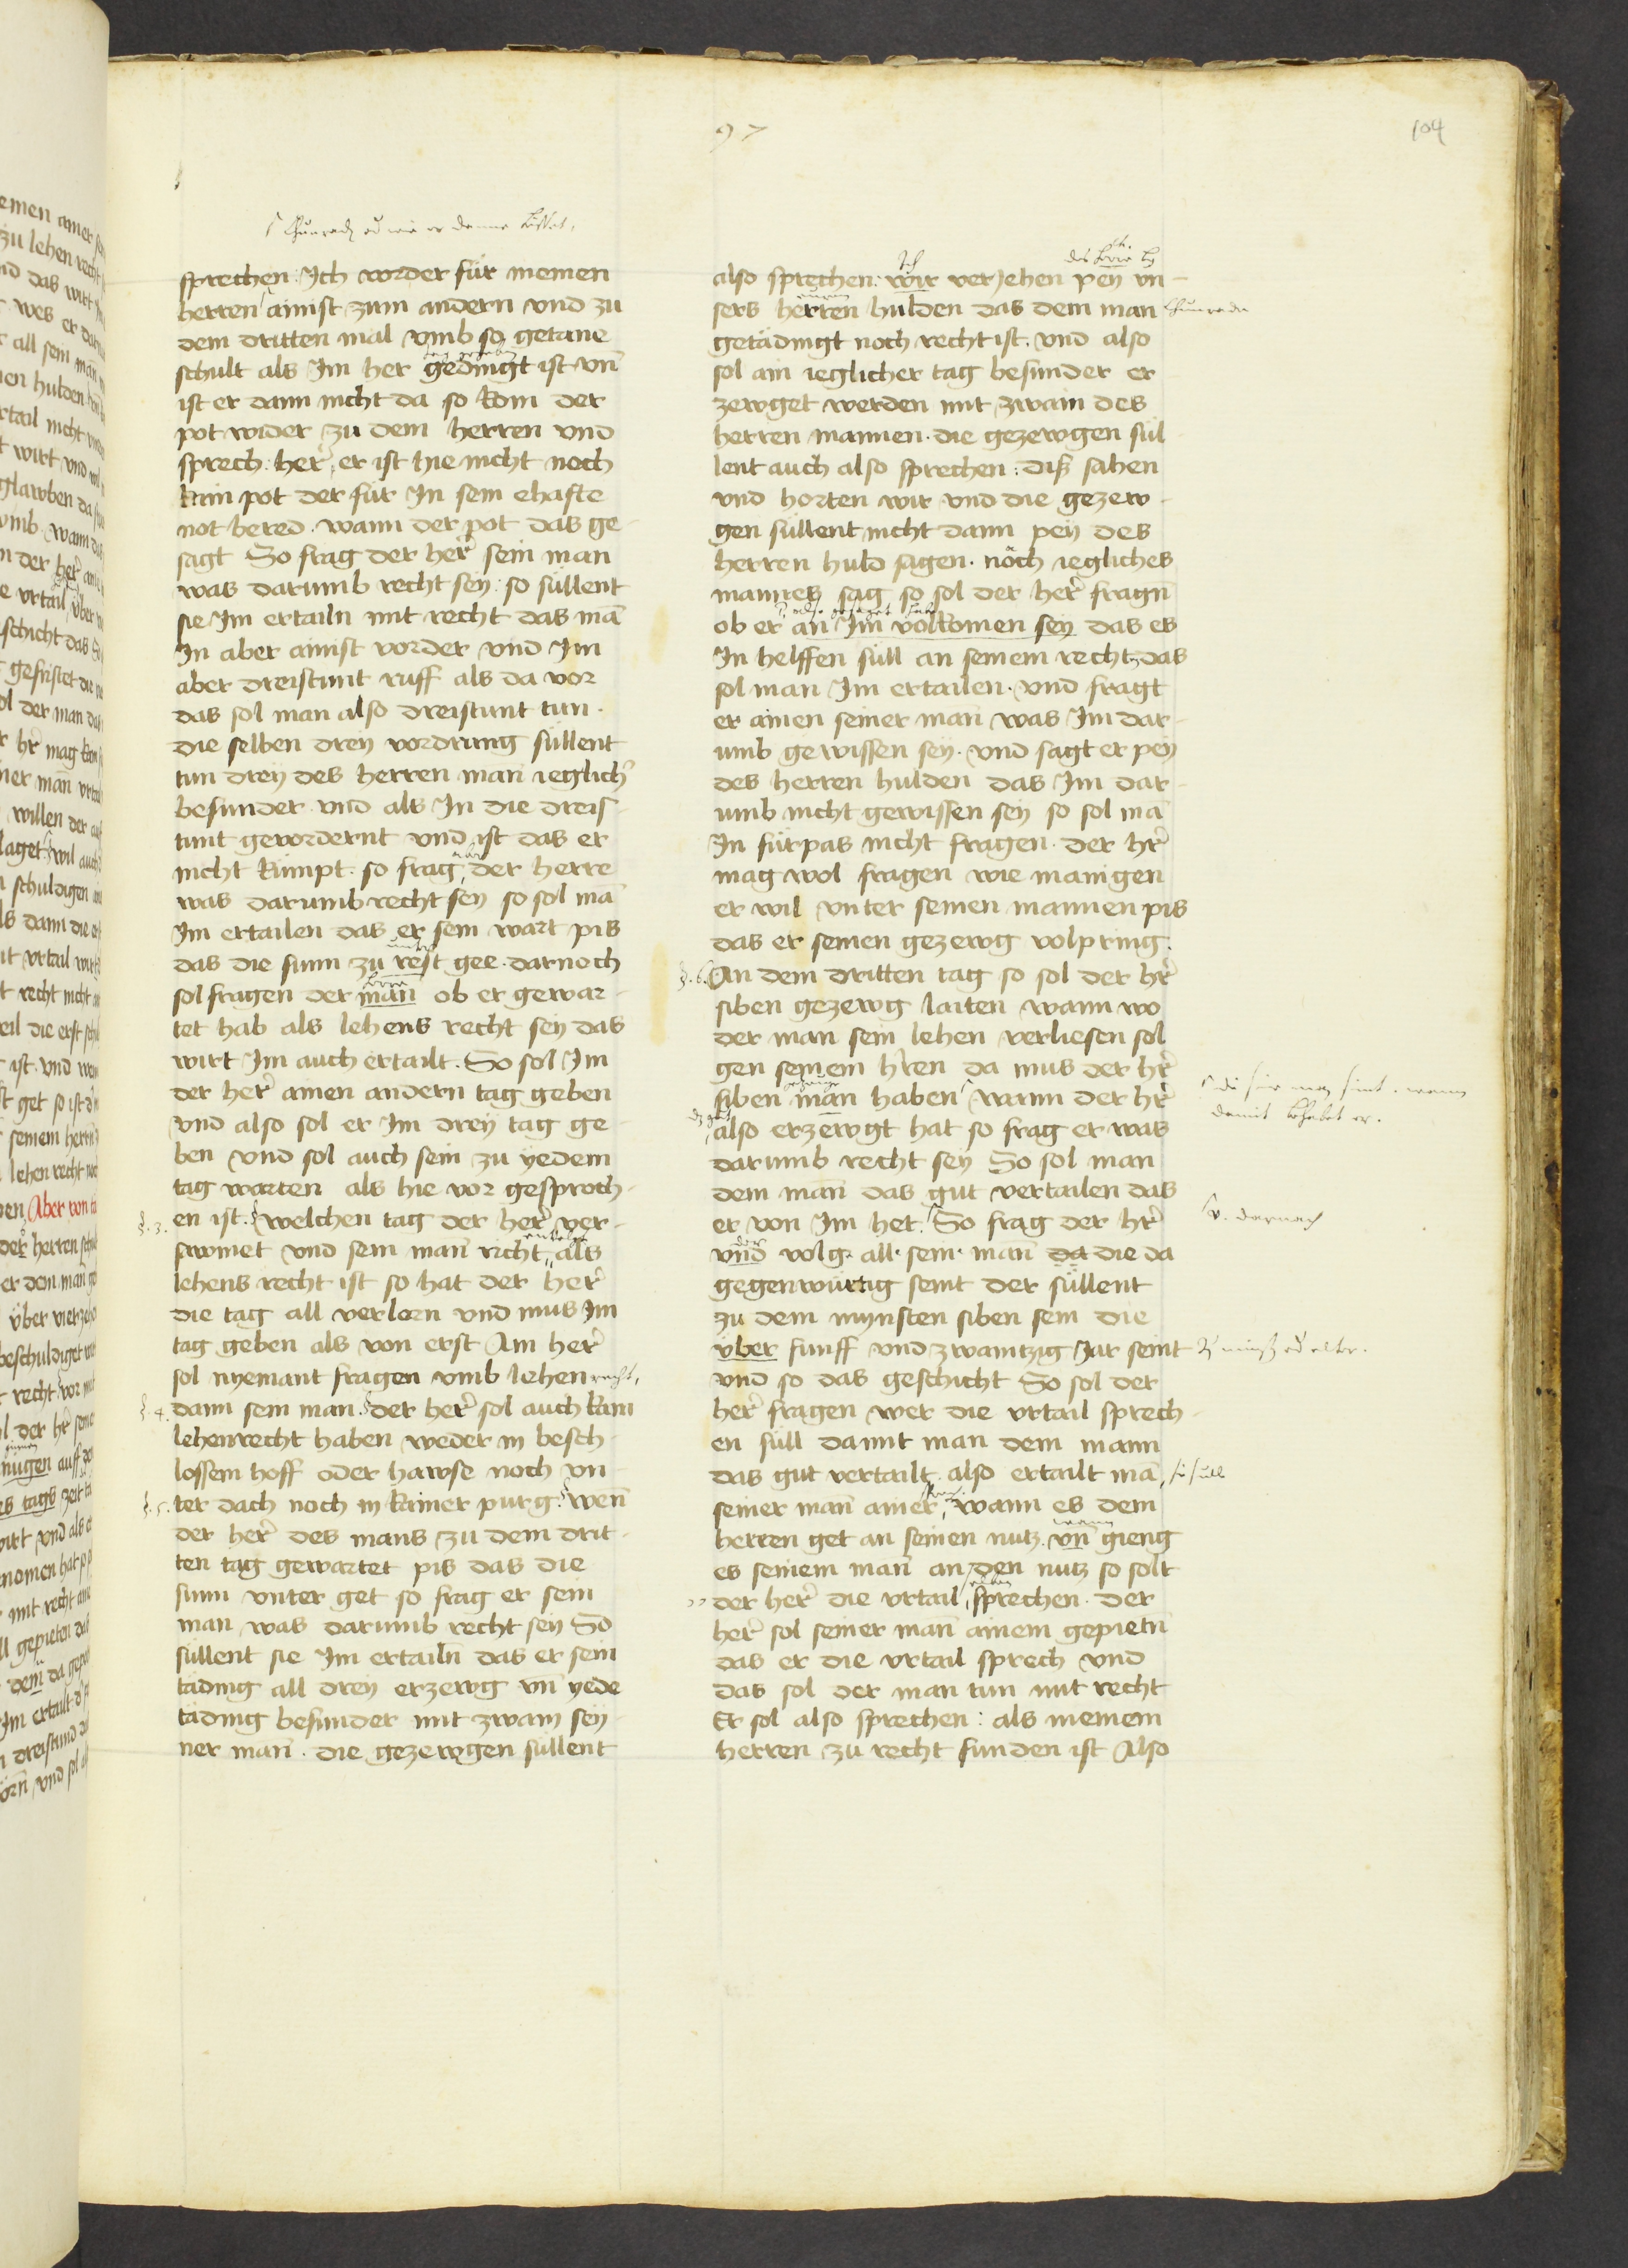 97
104
sprechen: Ich vorder für meinen
herren ainist zum andern vnd zu
dem dritten mal vmb so getane
schult als Im her gedingt ist vn̄
ist er dann nicht da so kom der
pot wider zu dem herren vnd
sprech: her̄, er ist hie nicht noch
kain pot der für In sein ehafte
not bered. wann der pot das ge-
sagt So frag der her̄ sein man
was darumb recht sey: so süllent
sie Im ertailn mit recht das mā
In aber ainist vorder vnd Im
aber dreistunt ruff als da vor
das sol man also dreistunt tun.
die selben drey vordrung süllent
tun drey des herren man ieglich̄
besunder vnd als In die dreis-
tunt gevordernt vnd ist das er
nicht kümpt. so frag der herre
was darumb recht sey so sol mā
Im ertailen das er sein wart pis
das die sunn zu rest gee. darnoch
sol fragen der man̄ ob er gewar-
tet hab als lehens recht sey das
wirt Im auch ertailt. So sol Im
der her̄ ainen andern tag geben
vnd also sol er Im drey tag ge-
ben vnd sol auch sein zu yedem
tag warten als hie vor gesproch-
§. 3. en ist. welchen tag der her̄ ver-
swmet vnd sein man̄ richt, als
lehens recht ist so hat der her̄
die tag all verlorn vnd mus Im
tag geben als von erst Ain her̄
sol nyemant fragen vmb lehen recht,
§. 4. dann sein man. der her̄ sol auch kain
lehenrecht haben weder in besch-
lossem hoff oder hawse noch vn-
§. 5. ter dach noch in kainer purg. wen̄
der her̄ des mans zu dem drit-
ten tag gewartet pis das die
sunn vnter get so frag er sein
man was darumb recht sey So
süllent sie Im ertailn̄ das er sein
täding all drey erzewg vn̄ yede
täding besunder mit zwain sey-
ner man̄. die gezewgen süllent
also sprechen: wir verjehen pey vn-
sers herren hulden das dem man
getädingt noch recht ist. vnd also
sol ain ieglicher tag besunder er
zewget werden mit zwain des
herren mannen. die gezewgen sül-
lent auch also sprechen: diß sahen
vnd horten wir vnd die gezew-
gen süllent nicht dann pey des
herren huld sagen. nöch iegliches
mannes sag so sol der her̄ fragn̄
ob er an Im volkomen sey das es
In helffen süll an seinem recht, das
sol man Im ertailen. vnd fragt
er ainen seiner man̄ was Im dar-
umb gewissen sey. vnd sagt er pey
des herren hulden das Im dar-
umb nicht gewissen sey so sol mā
In fürpas nicht fragen. der hr̄
mag wol fragen wie manigen
er wil vnter seinen mannen pis
das er seinen gezewg volpring.
§. 6. An dem dritten tag so sol der hr̄
siben gezewg laiten wann wo
der man sein lehen verliesen sol
gen seinem hr̄en da mus der hr̄
siben man̄ haben wann der hr̄
also erzewgt hat so frag er was
darumb recht sey So sol man
dem man̄ das gut vertailen das
er von Im het. So frag der hr̄
vnd volg. all. sein. man̄ da die da
gegenwürtig seint der süllent
zu dem mynsten siben sein die
über funff vnd zwaintzig Jar seint
vnd so das geschicht So sol der
her̄ fragen wer die vrtail sprech-
en süll damit man dem mann
das gut vertailt. also ertailt mā
seiner man̄ ainer, wann es dem
herren get an seinen nutz. vn̄ gieng
es seinem man̄ an den nutz so solt
der her̄ die vrtail sprechen. der
her̄ sol seiner man̄ ainem gepietn̄
das er die vrtail sprech vnd
das sol der man tun mit recht
Er sol also sprechen: als meinem
herren zu recht funden ist Also